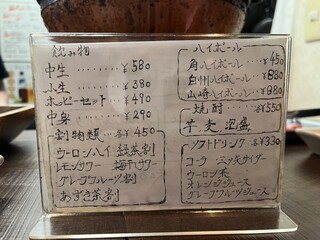 飲み物
中生 ‥‥‥ ¥580
小生 ‥‥‥ ¥380
ホッピーセット ‥‥ ¥490
中身 ‥‥‥ ¥290
割物類 各¥450
ウーロンハイ 緑茶割
レモンサワー 梅干サワー
グレープフルーツ割
あずき茶割
ハイボール
角ハイボール ‥ ¥450
白州ハイボール ‥ ¥880
山崎ハイボール ‥ ¥880
焼酎 各¥550
芋 麦 泡盛
ソフトドリンク 各¥330
コーラ 三ツ矢サイダー
ウーロン茶
オレンジジュース
グレープフルーツジュース